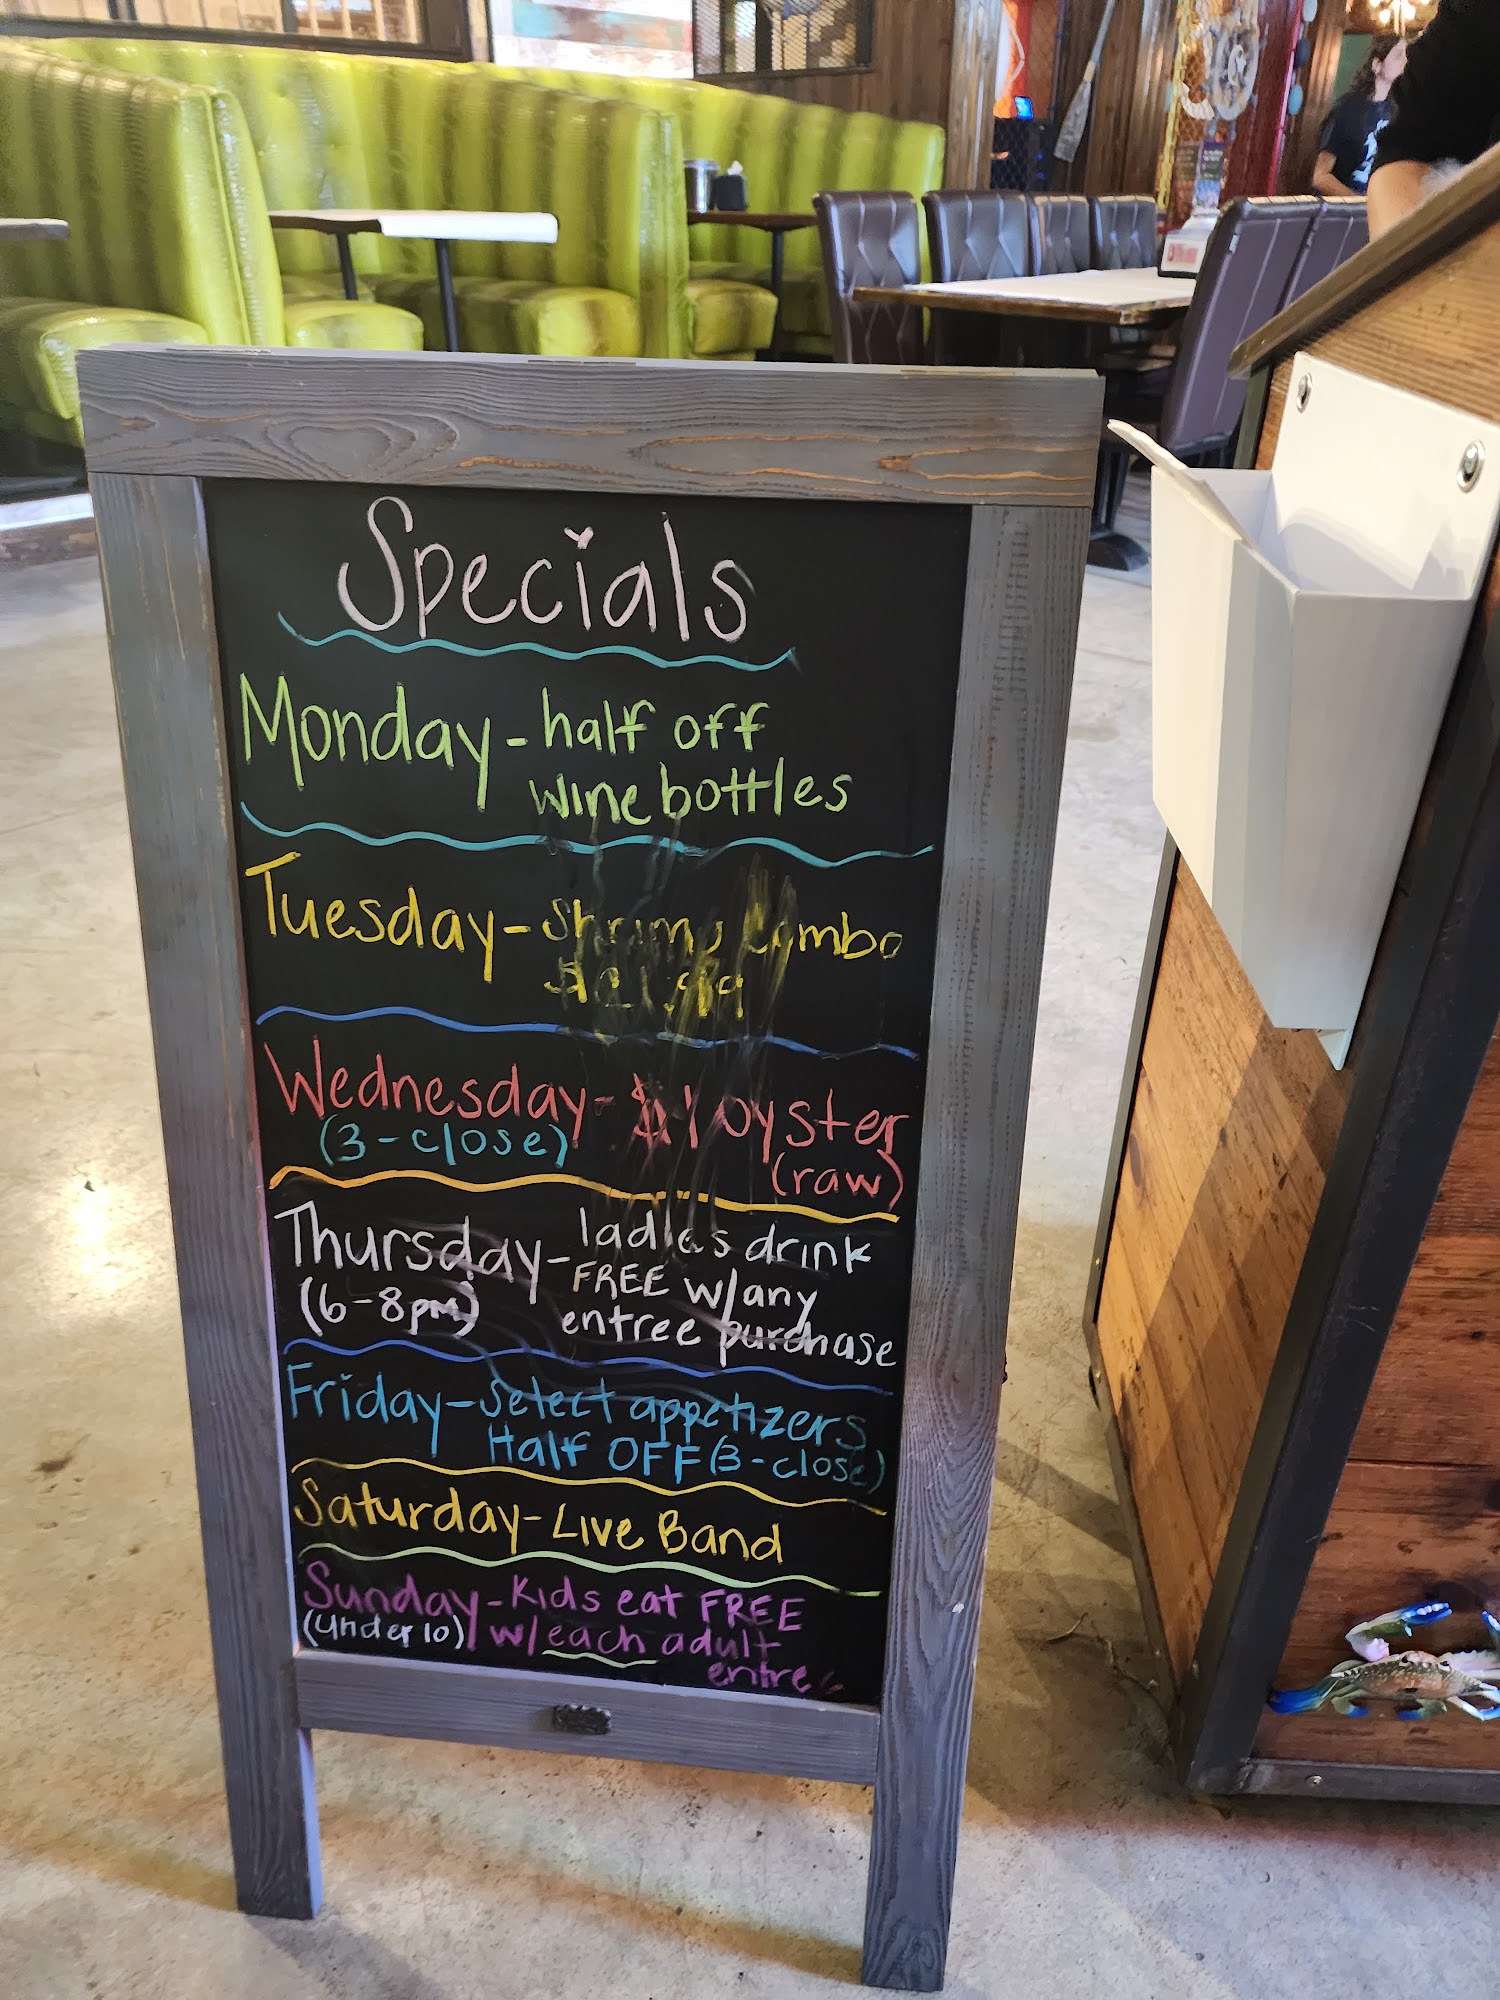 Specials
Monday - half off
wine bottles
Tuesday - Shrimp Combo
Wednesday - $1 oyster
(3-close) (raw)
Thursday - ladies drink
FREE w/any
(6-8pm) entree purchase
Friday - Select appetizers
Half OFF (3-close)
Saturday - Live Band
Sunday - Kids eat FREE
(under 10) w/each adult
entre